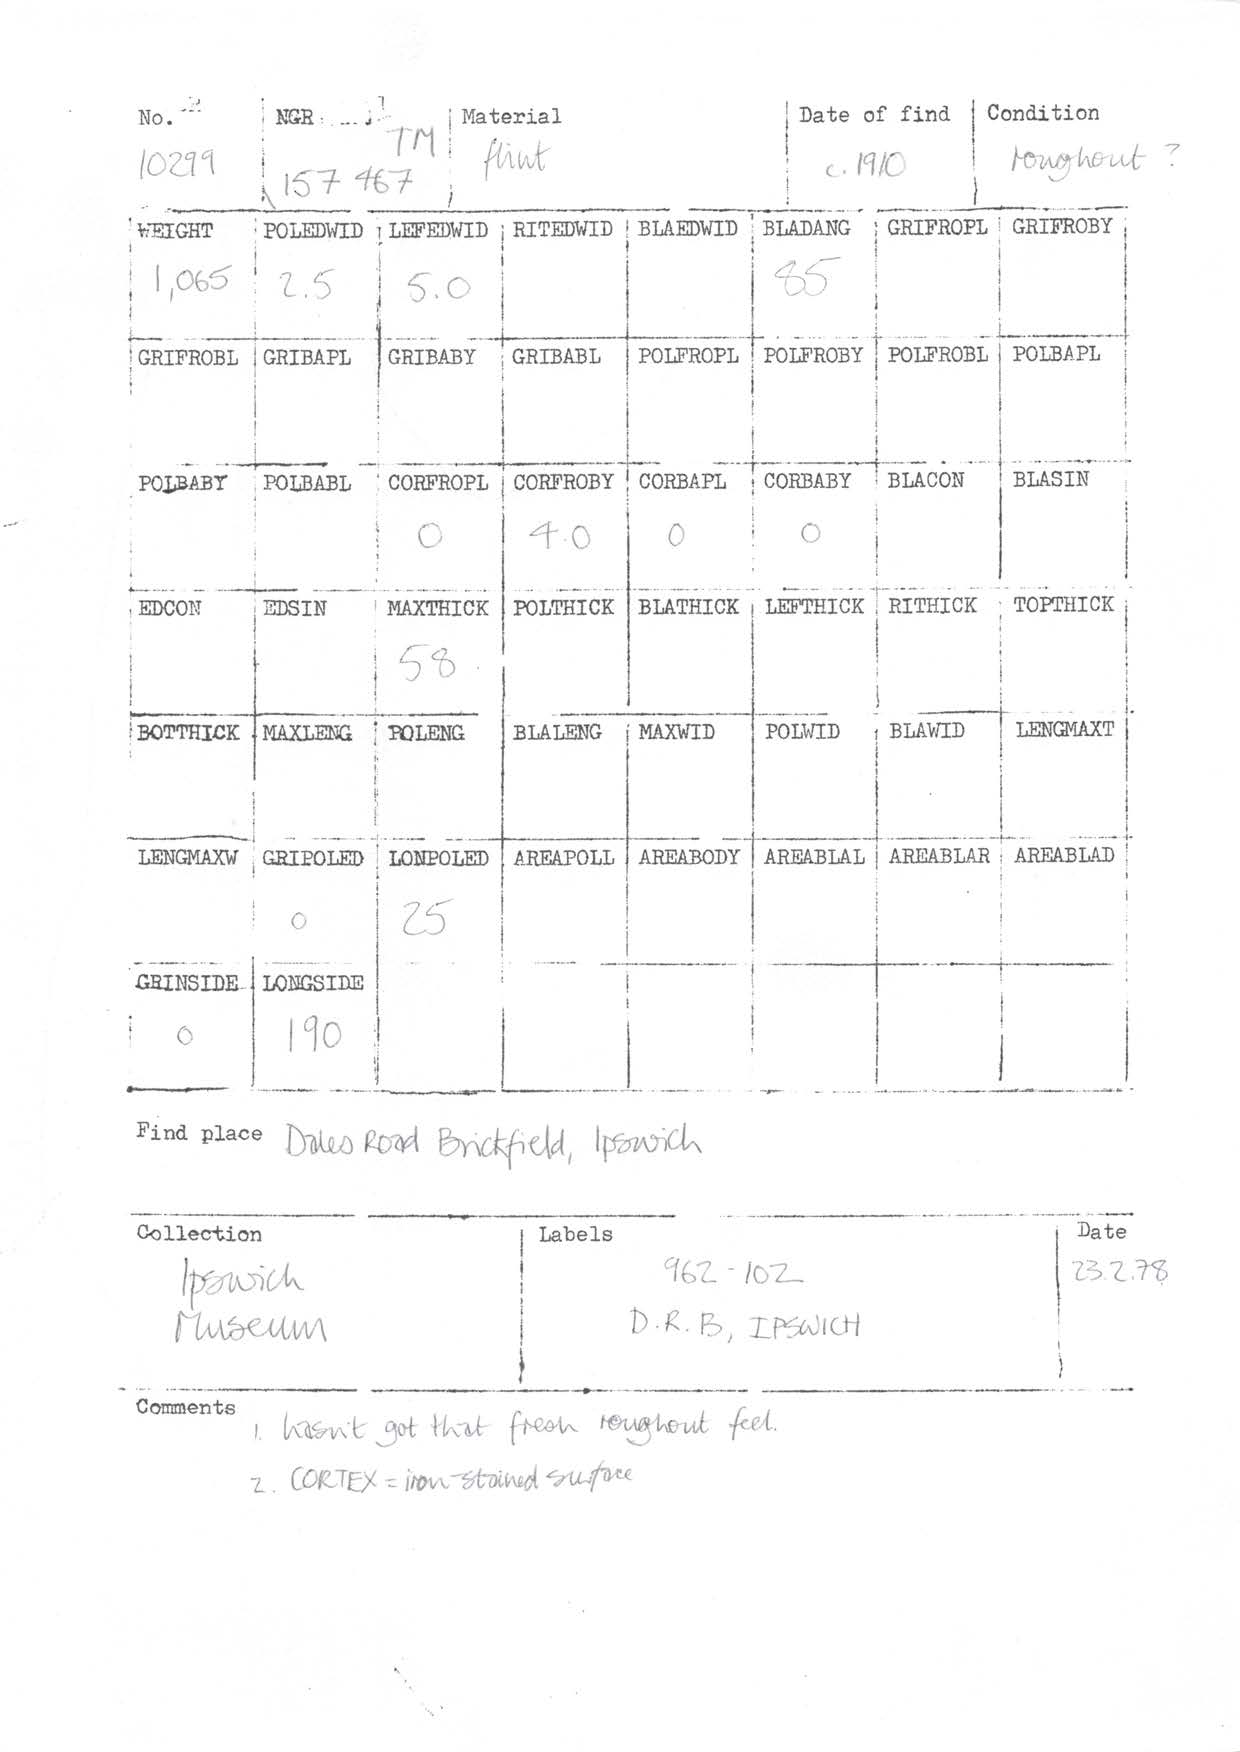 No. NGR Material Date of find Condition
10299 TM 157 467 flint c. 1910 roughout ?
WEIGHT POLEDWID LEFEDWID RITEDWID BLAEDWID BLADANG GRIFROPL GRIFROBY
1,065 2.5 5.0 85
GRIFROBL GRIBAPL GRIBABY GRIBABL POLFROPL POLFROBY POLFROBL POLBAPL
POLBABY POLBABL CORFROPL CORFROBY CORBAPL CORBABY BLACON BLASIN
0 40 0 0
EDCON EDSIN MAXTHICK POLTHICK BLATHICK LEFTHICK RITHICK TOPTHICK
58
BOTTHICK MAXLENG POLENG BLALENG MAXWID POLWID BLAWID LENGMAXT
LENGMAXW GRIPOLED LONPOLED AREAPOLL AREABODY AREABLAL AREABLAR AREABLAD
0 25
GRINSIDE LONGSIDE
0 190
Find place Dales Road Brickfield, Ipswich
Collection Labels Date
Ipswich 962-102 23.2.78
Museum D.R.B, IPSWICH
Comments
1. hasn't got that fresh roughout feel.
2. CORTEX = iron-stained surface